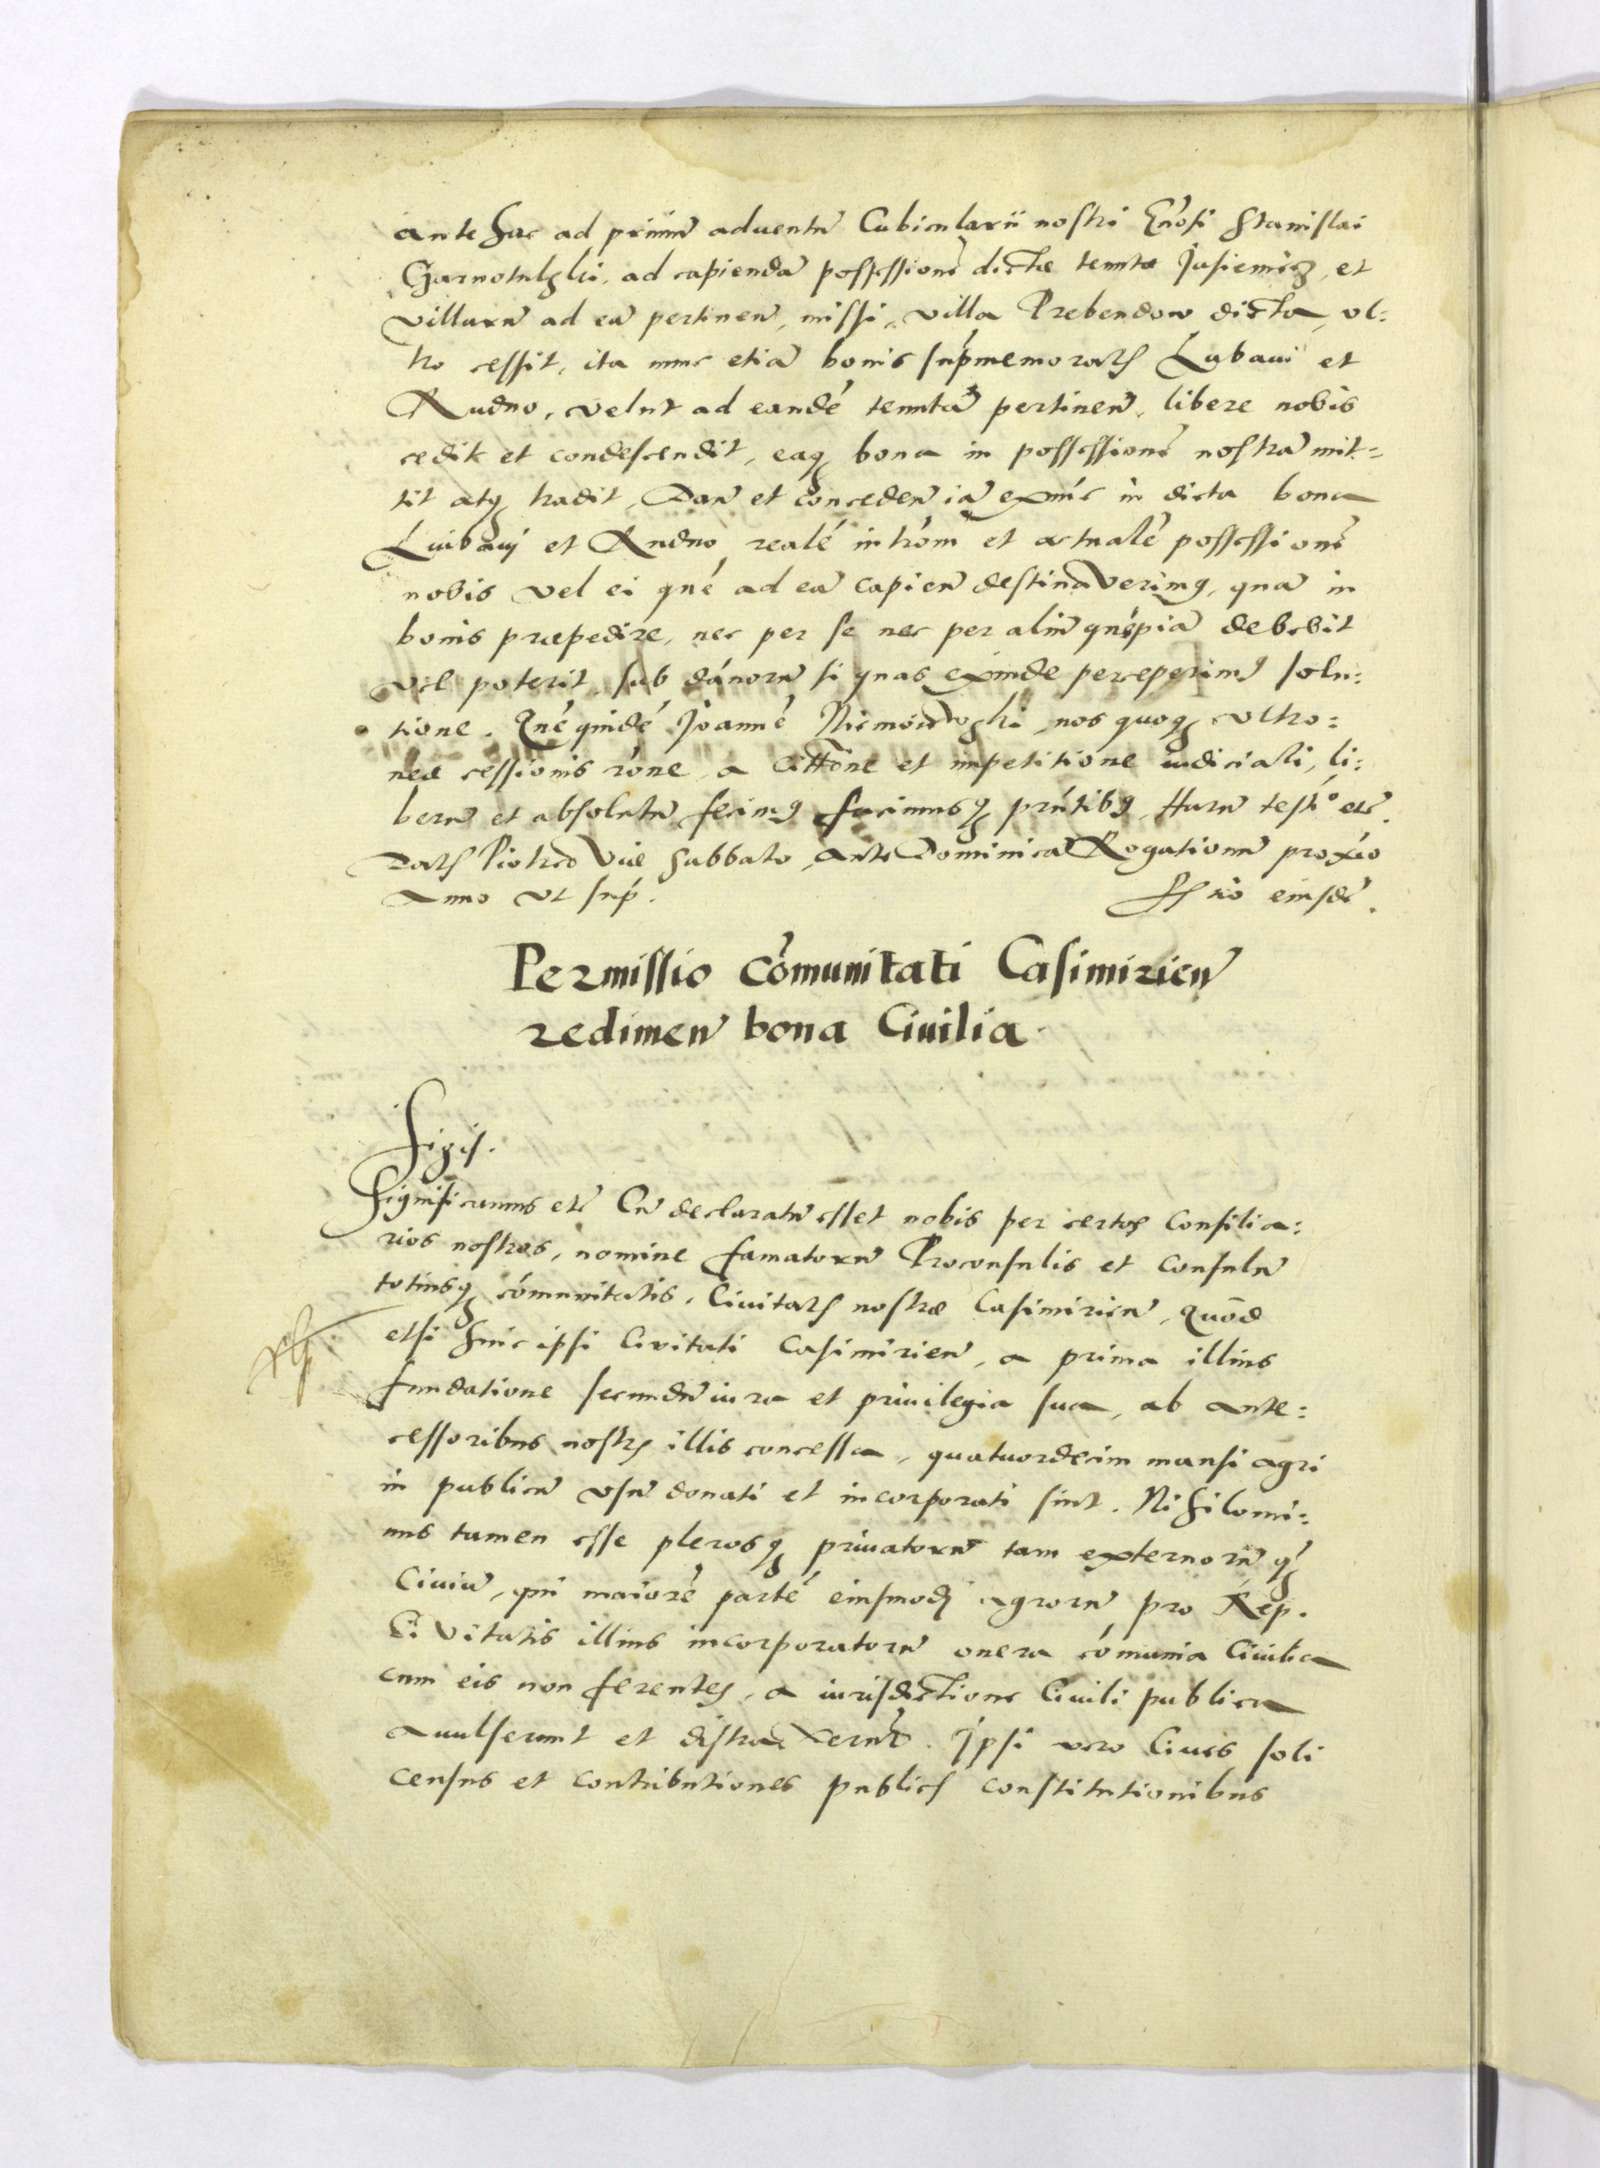 ante hac ad primũ aduentũ Cubicularii nostri Gnosi Stanislai
ad capiendã possessionẽ dictæ tenutæ et
villarũ ad eã pertinen̄, missi, villa Prebendow dicta, vl:
tro cessit, ita nunc etiã bonis sup̃memoratis Lubaui et
Rudno, velut ad eandẽ tenutã pertinen̄, libere nobis
cedit et condescendit, eaq₃ bona in possessionẽ nostrã mit:
tit atq₃ tradit, Dan̄ et conceden̄ iã in dicta bona
Luibauij et Rudno realẽ intrõm et actualẽ possessionẽ
nobis vel ei quẽ ad eã capien̄ destinauerimꝰ, quã in
bonis præpedire, nec per se nec per aliũ quẽpiã debebit
vel poterit, sub dãnorũ si quas exinde perceperimꝰ solu:
tione. Quẽ quidẽ Joannẽ nos quoq₃ vltro:
neæ cessionis rõne, a cittõne et impetitione iudiciali, li:
berũ et absolutũ fecimꝰ facimusq₃ prñtibꝰ. Harũ testiº etc̃.
Datis Piotrcouiæ Sabbato ante Dominicã Rogationũ proxĩo
Anno vt sup̃. Rtio eiusdẽ.
Permissio cõmunitati Casimirien̄
redimen̄ bona Ciuilia.
Sigis.
Significamus etc̃ Cũ declaratũ esset nobis per certos Consilia:
rios nostros, nomine famatorũ Proconsulis et Consulũ
totiusq₃ cõmunitatis, Ciuitatis nostræ Casimirien̄, Quod
etsi huic ipsi Civitati Casimirien̄, a prima illius
fundatione secundũ iura et priuilegia sua, ab ante:
cessoribus nostris illis concessa, quatuordecim mansi agri
in publicũ vsũ donati et incorporati sint. Nihilomi:
nus tamen esse plerosq₃ priuatorũ tam externorũ q̃₃
Ciuiũ, qui maiorẽ partẽ eiusmodi agrorũ pro Rep.
Civitatis illius incorporatorũ onera cõmunia Ciuilia
cum eis non ferentes, a iurisdictione Ciuili publica
auulserunt et distraxerunt. Ipsi vero Ciues soli
census et contributiones publicis constitutionibus